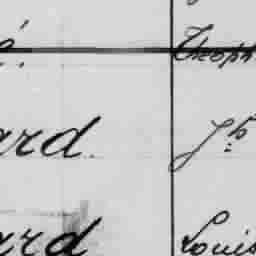 é. Theoph
ard. Jh:
ard Louis